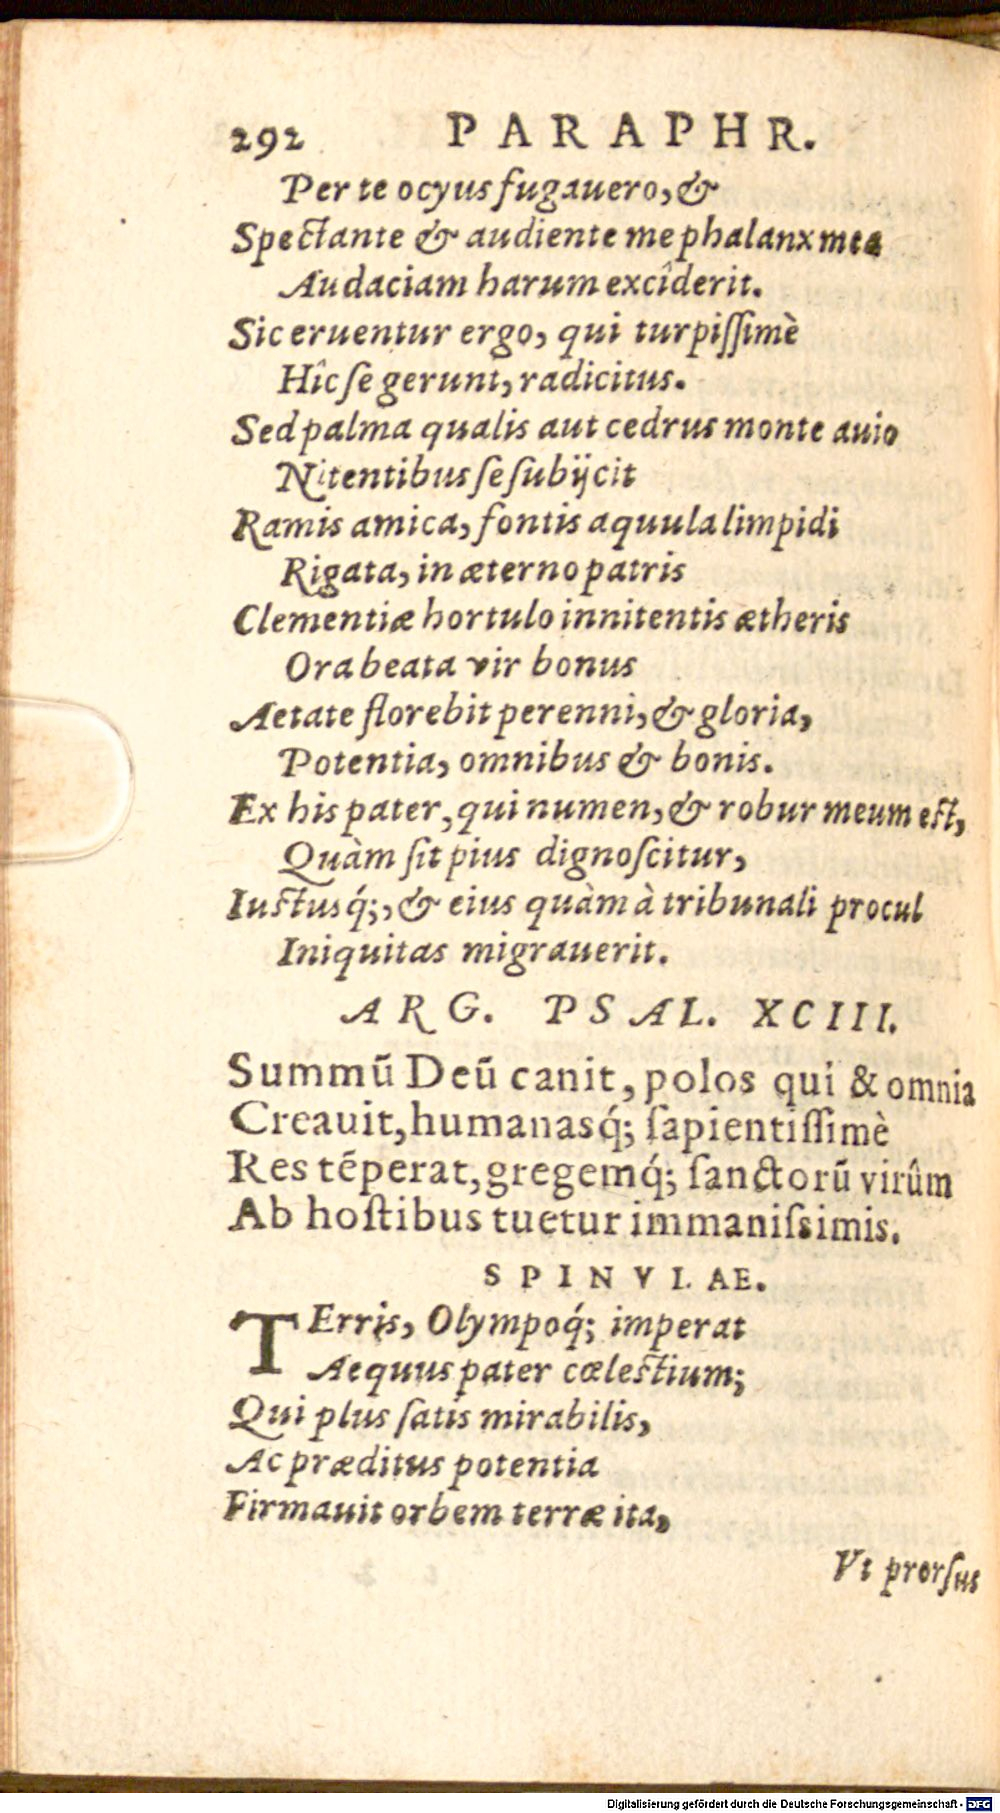 292 PARAPHR.
Per te ocyus fugauero, &
Spectante & audiente me phalanx mea
Audaciam harum excîderit.
Sic eruentur ergo, qui turpißimè
Hîc se gerunt, radicitus.
Sed palma qualis aut cedrus monte auio
Nitentibus se subijcit
Ramis amica, fontis aquula limpidi
Rigata, in æterno patris
Clementiæ hortulo innitentis ætheris
Ora beata vir bonus
Aetate florebit perenni, & gloria,
Potentia, omnibus & bonis.
Ex his pater, qui numen, & robur meum est,
Quàm sit pius dignoscitur,
Iustusq́;, & eius quàm à tribunali procul
Iniquitas migrauerit.
ARG. PSAL. XCIII.
Summū Deū canit, polos qui & omnia
Creauit, humanasq́; sapientissimè
Res tēperat, gregemq́; sanctorū virûm
Ab hostibus tuetur immanissimis.
SPINVLAE.
TErris, Olympoq́; imperat
Aequus pater cœlestium;
Qui plus satis mirabilis,
Ac præditus potentia
Firmauit orbem terræ ita,
Vt prorsus
Digitalisierung gefördert durch die Deutsche Forschungsgemeinschaft - DFG